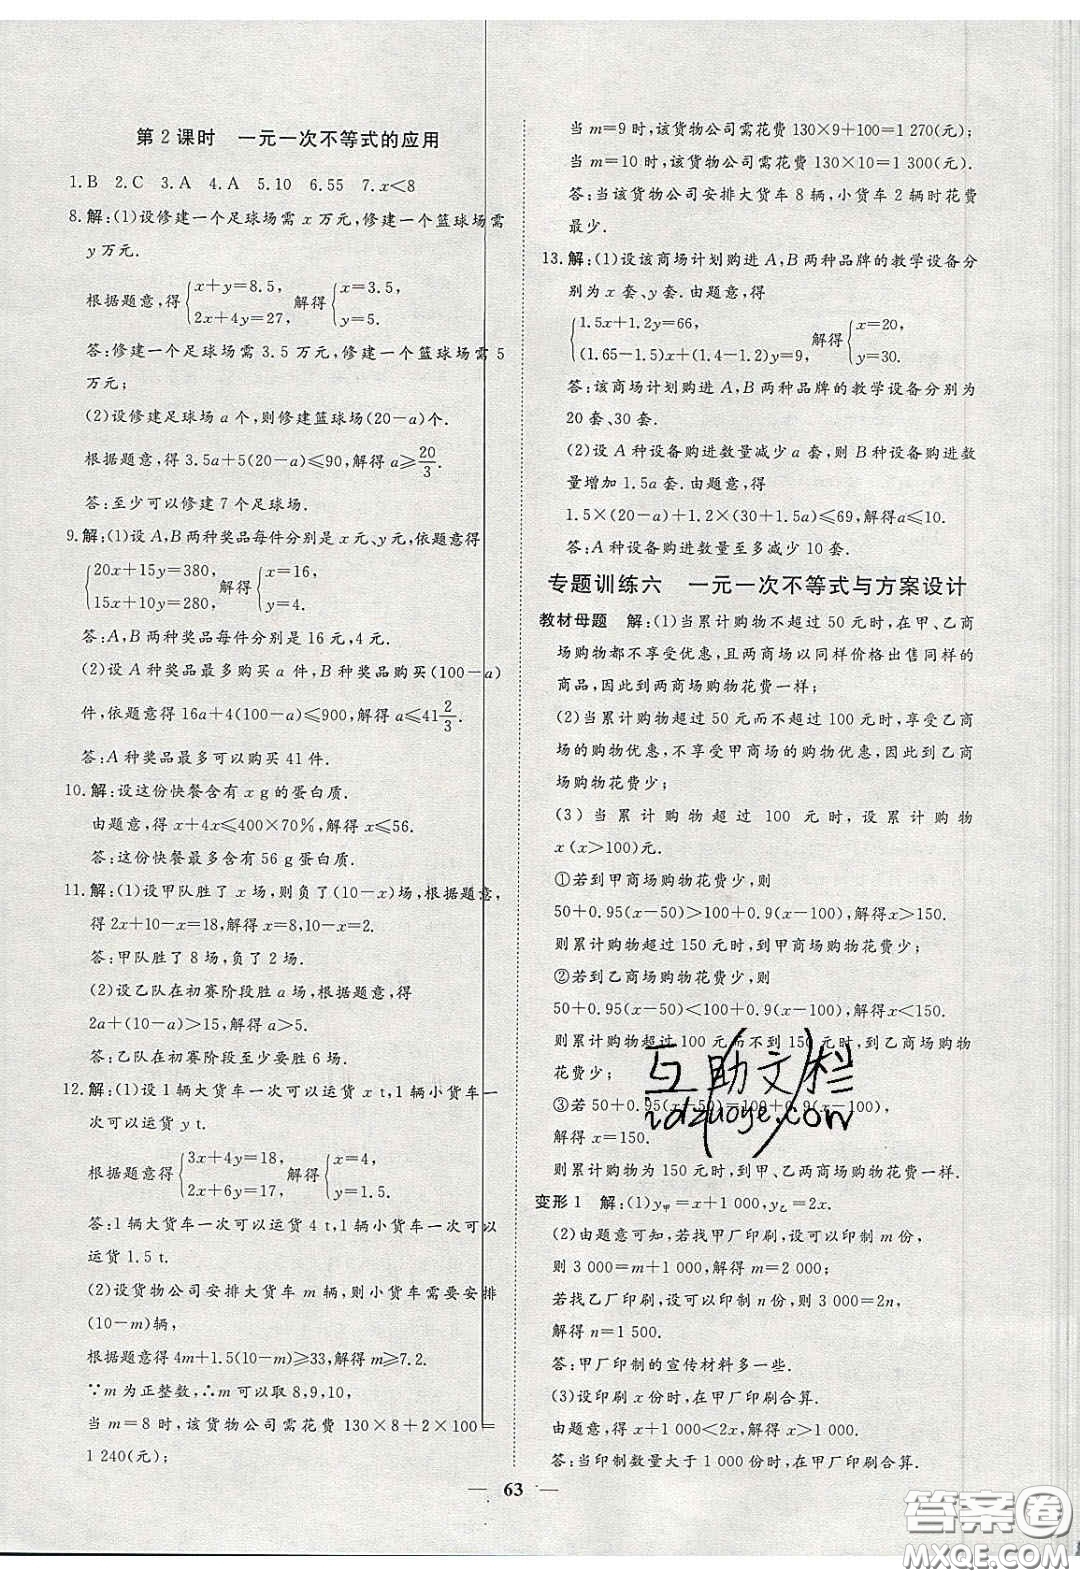 第2课时 一元一次不等式的应用
1.B 2.C 3.A 4.A 5.10 6.55 7.x<8
8.解:(1)设修建一个足球场需 x 万元,修建一个篮球场需
y 万元.
根据题意,得{x+y=8.5, 2x+4y=27, 解得{x=3.5, y=5.
答:修建一个足球场需 3.5 万元,修建一个篮球场需 5
万元;
(2)设修建足球场 a 个,则修建篮球场(20-a)个.
根据题意,得 3.5a+5(20-a)≤90,解得 a≥20/3.
答:至少可以修建 7 个足球场.
9.解:(1)设 A,B 两种奖品每件分别是 x 元、y 元,依题意得
{20x+15y=380, 15x+10y=280, 解得{x=16, y=4.
答:A,B 两种奖品每件分别是 16 元,4 元.
(2)设 A 种奖品最多购买 a 件,B 种奖品购买(100-a)
件,依题意得 16a+4(100-a)≤900,解得 a≤41 2/3.
答:A 种奖品最多可以购买 41 件.
10.解:设这份快餐含有 x g 的蛋白质.
由题意,得 x+4x≤400×70%,解得 x≤56.
答:这份快餐最多含有 56 g 蛋白质.
11.解:(1)设甲队胜了 x 场,则负了(10-x)场,根据题意,
得 2x+10-x=18,解得 x=8,10-x=2.
答:甲队胜了 8 场,负了 2 场.
(2)设乙队在初赛阶段胜 a 场,根据题意,得
2a+(10-a)>15,解得 a>5.
答:乙队在初赛阶段至少要胜 6 场.
12.解:(1)设 1 辆大货车一次可以运货 x t,1 辆小货车一
次可以运货 y t.
根据题意得{3x+4y=18, 2x+6y=17, 解得{x=4, y=1.5.
答:1 辆大货车一次可以运货 4 t,1 辆小货车一次可以
运货 1.5 t.
(2)设货物公司安排大货车 m 辆,则小货车需要安排
(10-m)辆,
根据题意得 4m+1.5(10-m)≥33,解得 m≥7.2.
∵m 为正整数,∴m 可以取 8,9,10,
当 m=8 时,该货物公司需花费 130×8+2×100=
1 240(元);
当 m=9 时,该货物公司需花费 130×9+100=1 270(元)
当 m=10 时,该货物公司需花费 130×10=1 300(元).
答:当该货物公司安排大货车 8 辆,小货车 2 辆时花费
最少.
13.解:(1)设该商场计划购进 A,B 两种品牌的教学设备分
别为 x 套、y 套.由题意,得
{1.5x+1.2y=66, (1.65-1.5)x+(1.4-1.2)y=9, 解得{x=20, y=30.
答:该商场计划购进 A,B 两种品牌的教学设备分别为
20 套、30 套.
(2)设 A 种设备购进数量减少 a 套,则 B 种设备购进数
量增加 1.5a 套.由题意,得
1.5×(20-a)+1.2×(30+1.5a)≤69,解得 a≤10.
答:A 种设备购进数量至多减少 10 套.
专题训练六 一元一次不等式与方案设计
教材母题 解:(1)当累计购物不超过 50 元时,在甲、乙商
场购物都不享受优惠,且两商场以同样价格出售同样的
商品,因此到两商场购物花费一样;
(2)当累计购物超过 50 元而不超过 100 元时,享受乙商
场的购物优惠,不享受甲商场的购物优惠,因此到乙商
场购物花费少;
(3)当累计购物超过 100 元时,设累计购物
x(x>100)元.
①若到甲商场购物花费少,则
50+0.95(x-50)>100+0.9(x-100),解得 x>150.
则累计购物超过 150 元时,到甲商场购物花费少;
②若到乙商场购物花费少,则
50+0.95(x-50)<100+0.9(x-100),解得 x<150.
则累计购物超过 100 元而不到 150 元时,到乙商场购物
花费少;
③若 50+0.95(x-50)=100+0.9(x-100),
解得 x=150.
则累计购物为 150 元时,到甲、乙两商场购物花费一样.
变形 1 解:(1)y甲=x+1 000,y乙=2x.
(2)由题意可知,若找甲厂印刷,设可以印制 m 份,
则 3 000=m+1 000,解得 m=2 000;
若找乙厂印刷,设可以印制 n 份,则 3 000=2n,
解得 n=1 500.
答:甲厂印制的宣传材料多一些.
(3)设印刷 x 份时,在甲厂印刷合算.
由题意,得 x+1 000<2x,解得 x>1 000.
答:当印制数量大于 1 000 份时,在甲厂印刷合算.
— 63 —
互助文档
答案圈
MXQE.COM